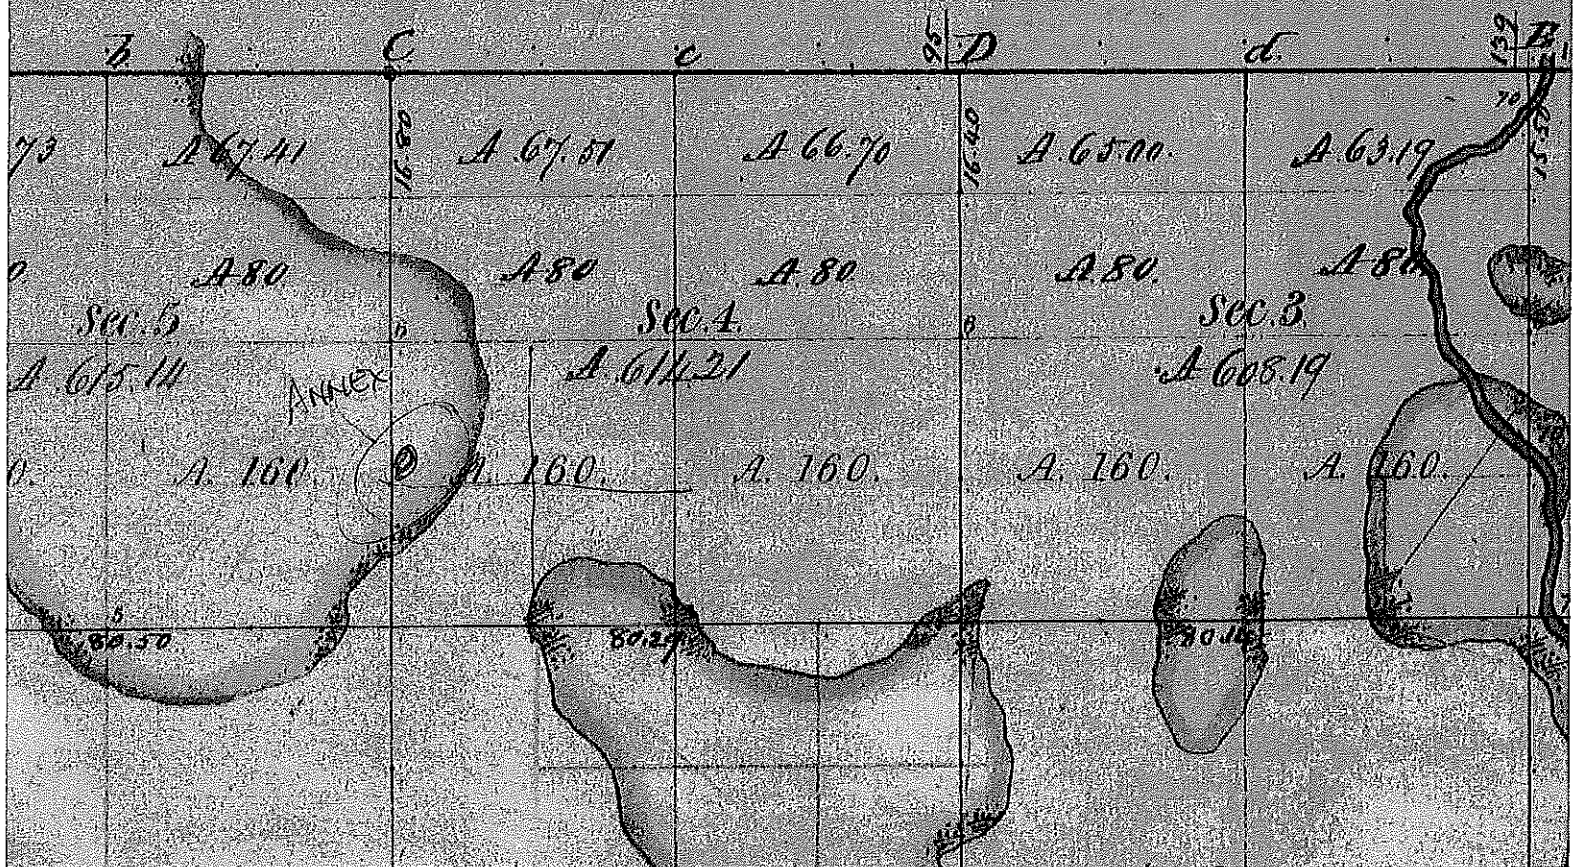 b C c 25 D d. 139 E
70
73 A 67.41 16.80 A 67.51 A 66.70 16.40 A. 65.00. A 63.19 15.52
0. A 80 A 80 A. 80 A. 80. A 80
Sec. 5 Sec. 4. Sec. 3.
A. 615.14 A. 614.21 A 608.19
ANNEX
0. A. 160. A. 160. A. 160. A. 160. A. 160.
80.50 80.29